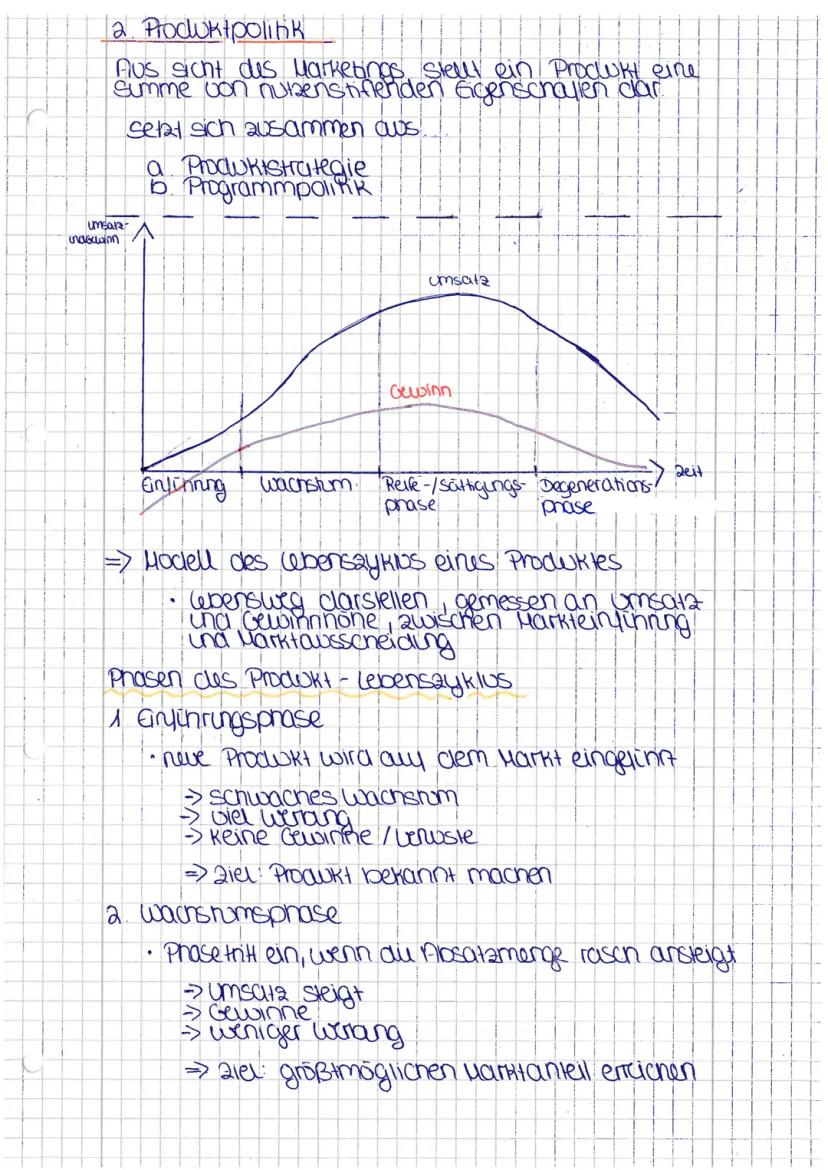 2. Produktpolitik
Aus sicht des Marketings stellt ein Produkt eine
summe von nutzenstiftenden Eigenschaften dar.
setzt sich zusammen aus...
a. Produktstrategie
b. Programmpolitik
umsatz-
und Gewinn
umsatz
Gewinn
zeit
Einführung
Wachstum
Reife-/Sättigungs-
phase
Degenerations-
phase
=> Modell des Lebenszyklus eines Produktes
• Lebensweg darstellen, gemessen an Umsatz
und Gewinnhöhe, zwischen Markteinführung
und Marktausscheidung
Phasen des Produkt-Lebenszyklus
1. Einführungsphase
• neue Produkt wird auf dem Markt eingeführt
-> schwaches Wachstum
-> viel Werbung
-> keine Gewinne / Verluste
=> Ziel: Produkt bekannt machen
2. Wachstumsphase
• Phase tritt ein, wenn die Absatzmenge rasch ansteigt
-> Umsatz steigt
-> Gewinne
-> weniger Werbung
=> Ziel: größtmöglichen Marktanteil erreichen